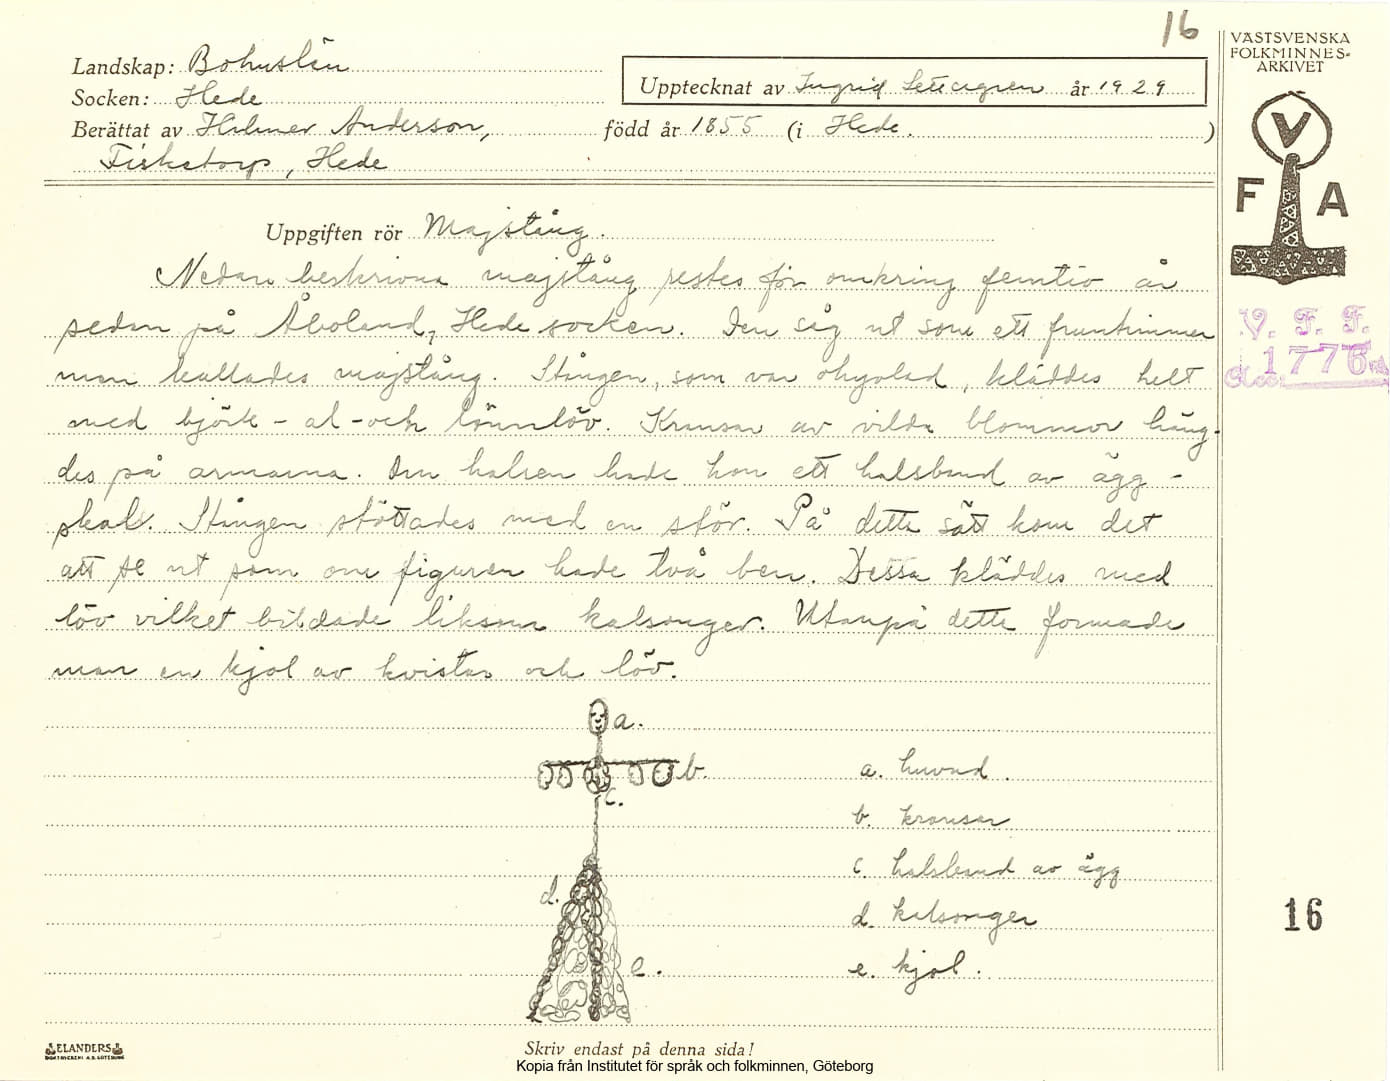 16
Landskap: Bohuslän
Socken: Hede
Upptecknat av Ingrid år 1929
Berättat av Hilmer Anderson, född år 1855 (i Hede. )
Fisketorp, Hede
Uppgiften rör Majstång.
Nedan beskrivna majstång restes för omkring femtio år
sedan på Åboland, Hede socken. Den såg ut som ett fruntimmer
men kallades majstång. Stången, som var ohyvlad, kläddes helt
med björk- al- och lönnlöv. Kransar av vilda blommor häng-
des på armarna. Om halsen hade hon ett halsband av ägg-
skal. Stången stöttades med en stör. På detta sätt kom det
att se ut som om figuren hade två ben. Dessa kläddes med
löv vilket bildade liksom kalsonger. Utanpå detta formade
man en kjol av kvistar och löv.
a.
b.
c.
d.
e.
a. huvud.
b. kransar
c. halsband av ägg
d. kalsonger
e. kjol.
VÄSTSVENSKA
FOLKMINNES-
ARKIVET
V
F A
V. F. F.
1776
16
ELANDERS
BOKTRYCKERI A.B. GÖTEBORG
Skriv endast på denna sida!
Kopia från Institutet för språk och folkminnen, Göteborg